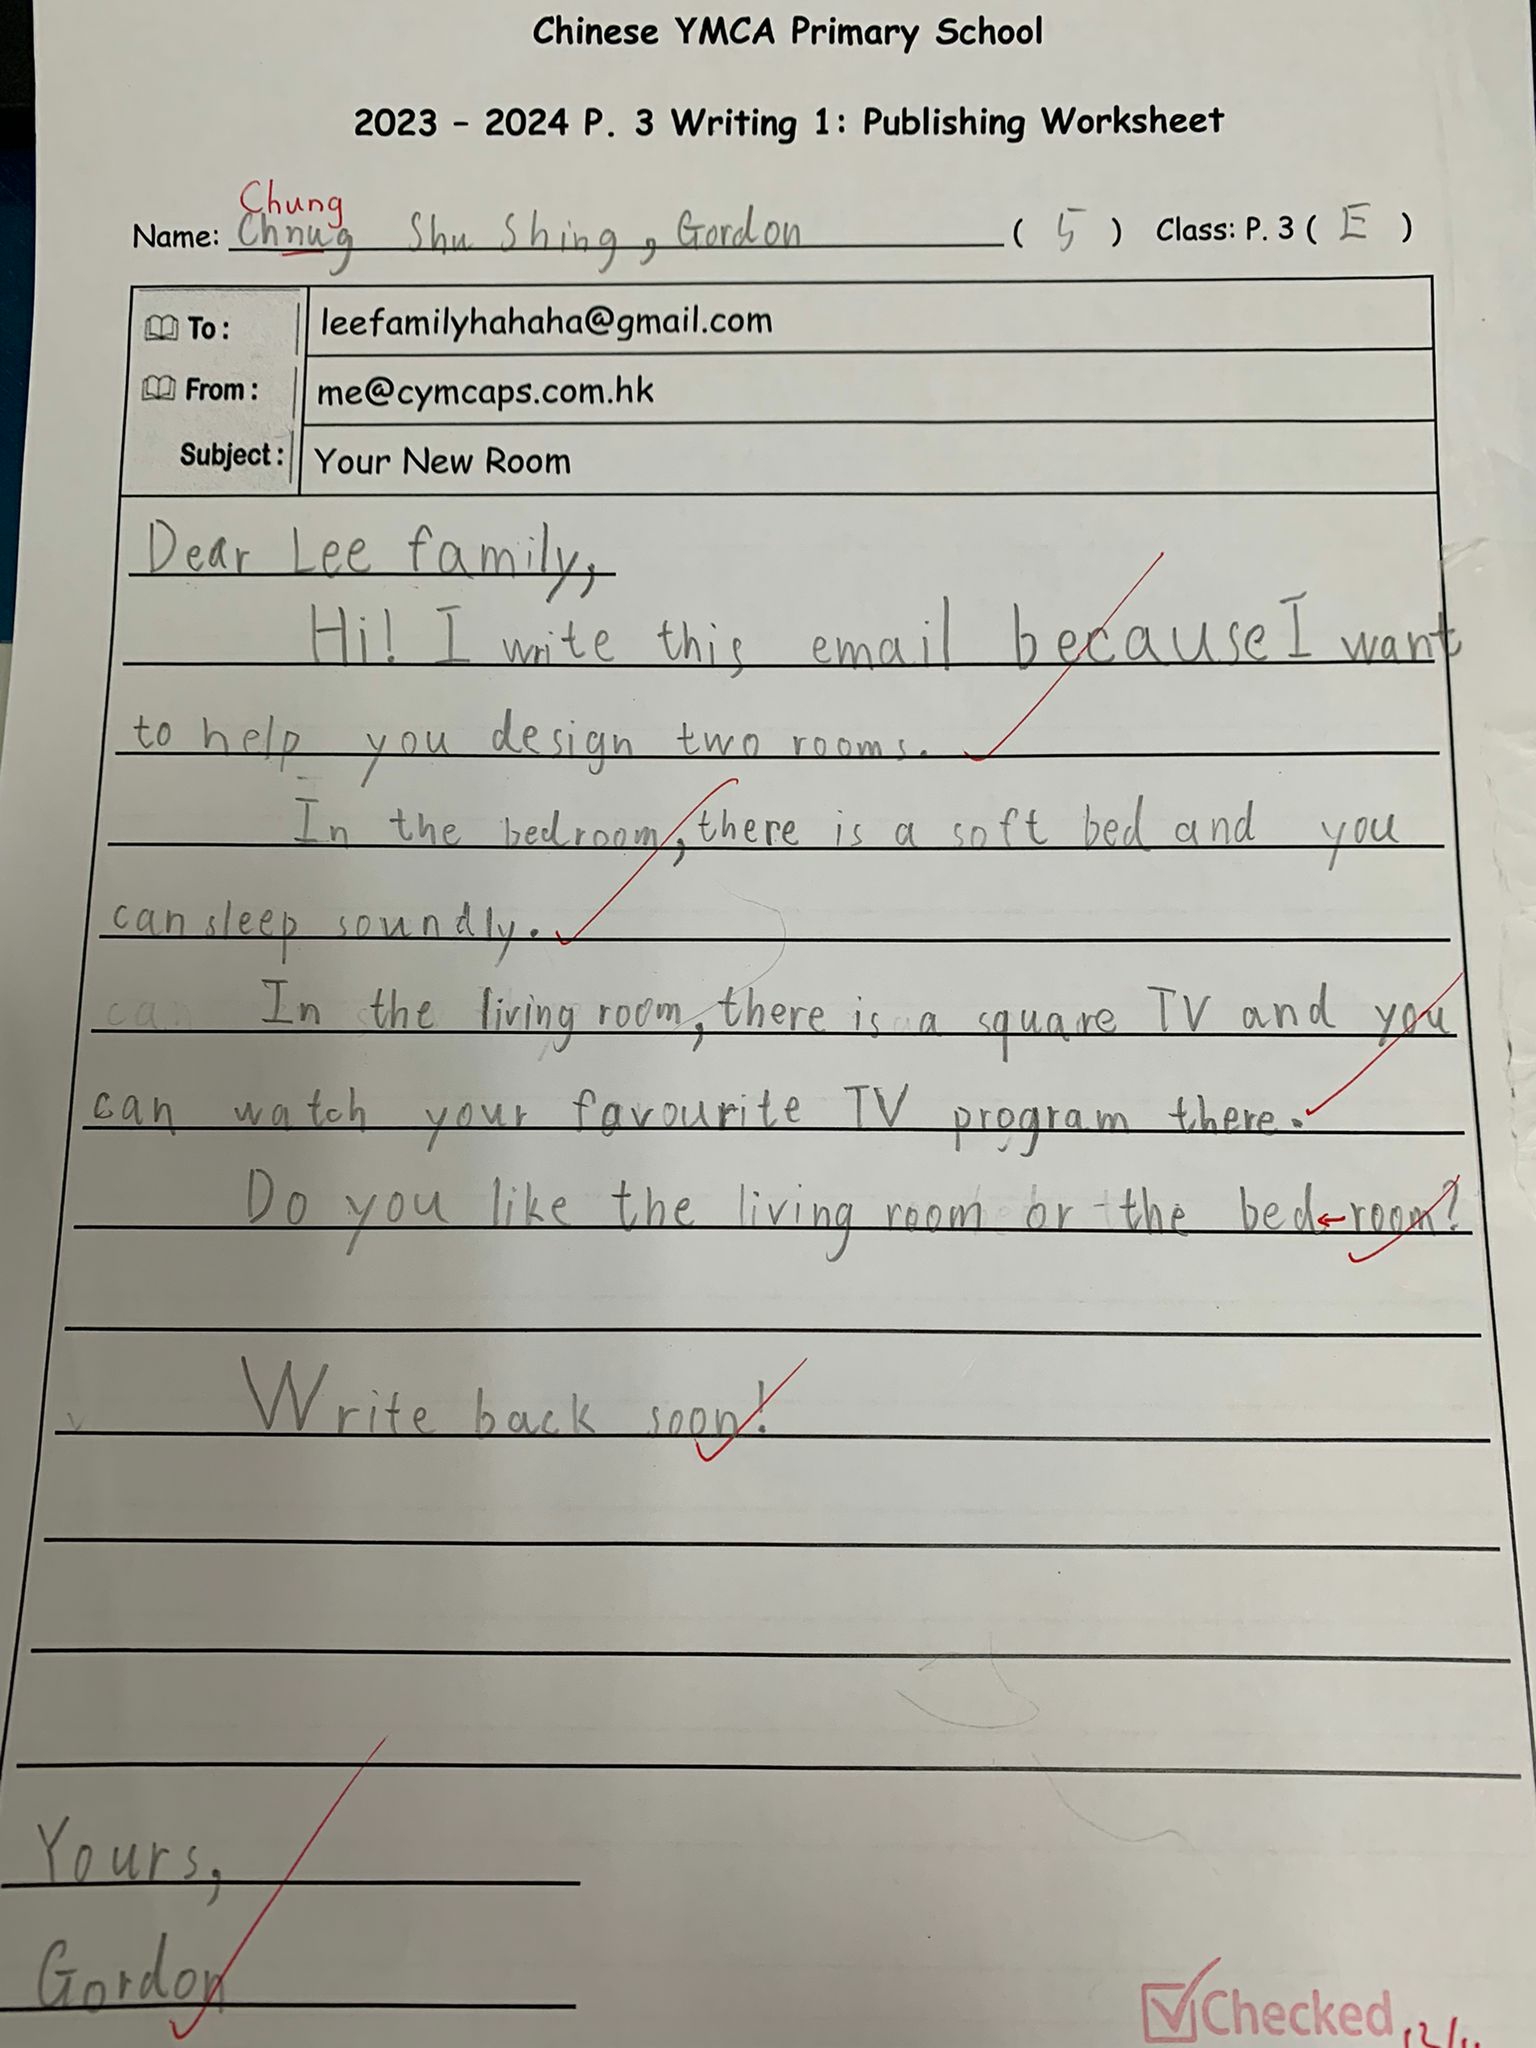 Chinese YMCA Primary School
2023 - 2024 P. 3 Writing 1: Publishing Worksheet
Chung
Name: Chnug Shu Shing, Gordon ( 5 ) Class: P. 3 ( E )
To: leefamilyhahaha@gmail.com
From: me@cymcaps.com.hk
Subject: Your New Room
Dear Lee family,
Hi! I write this email because I want
to help you design two rooms.
In the bedroom, there is a soft bed and you
can sleep soundly.
In the living room, there is a square TV and you
can watch your favourite TV program there.
Do you like the living room or the bed room?
Write back soon!
Yours,
Gordon
Checked